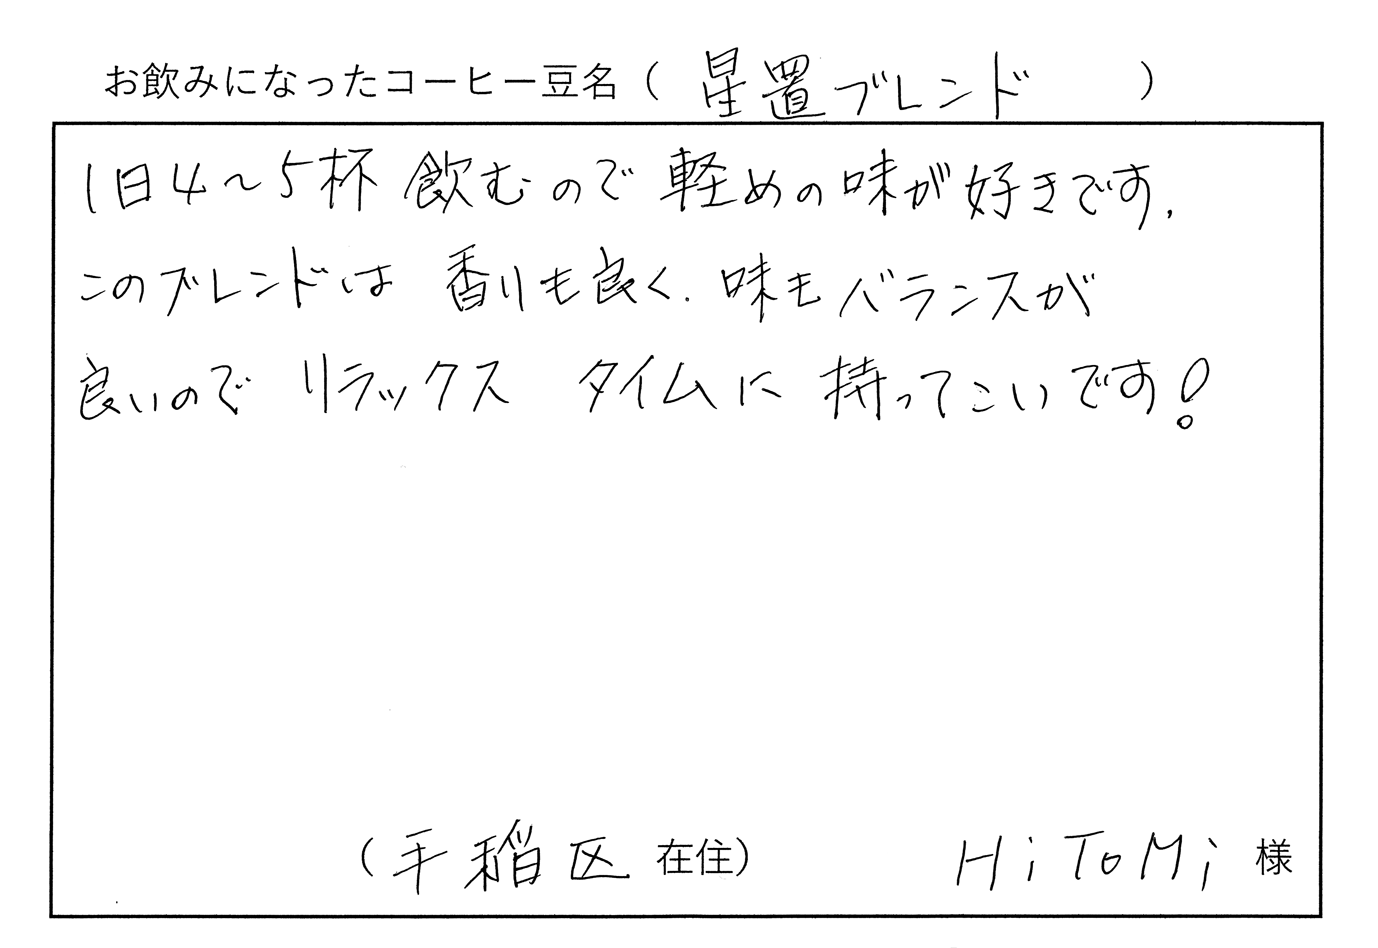 お飲みになったコーヒー豆名（ 星置ブレンド ）
1日4～5杯 飲むので 軽めの味が好きです.
このブレンドは 香りも良く. 味もバランスが
良いので リラックス タイムに 持ってこいです!
（手稲区 在住） HiToMi 様